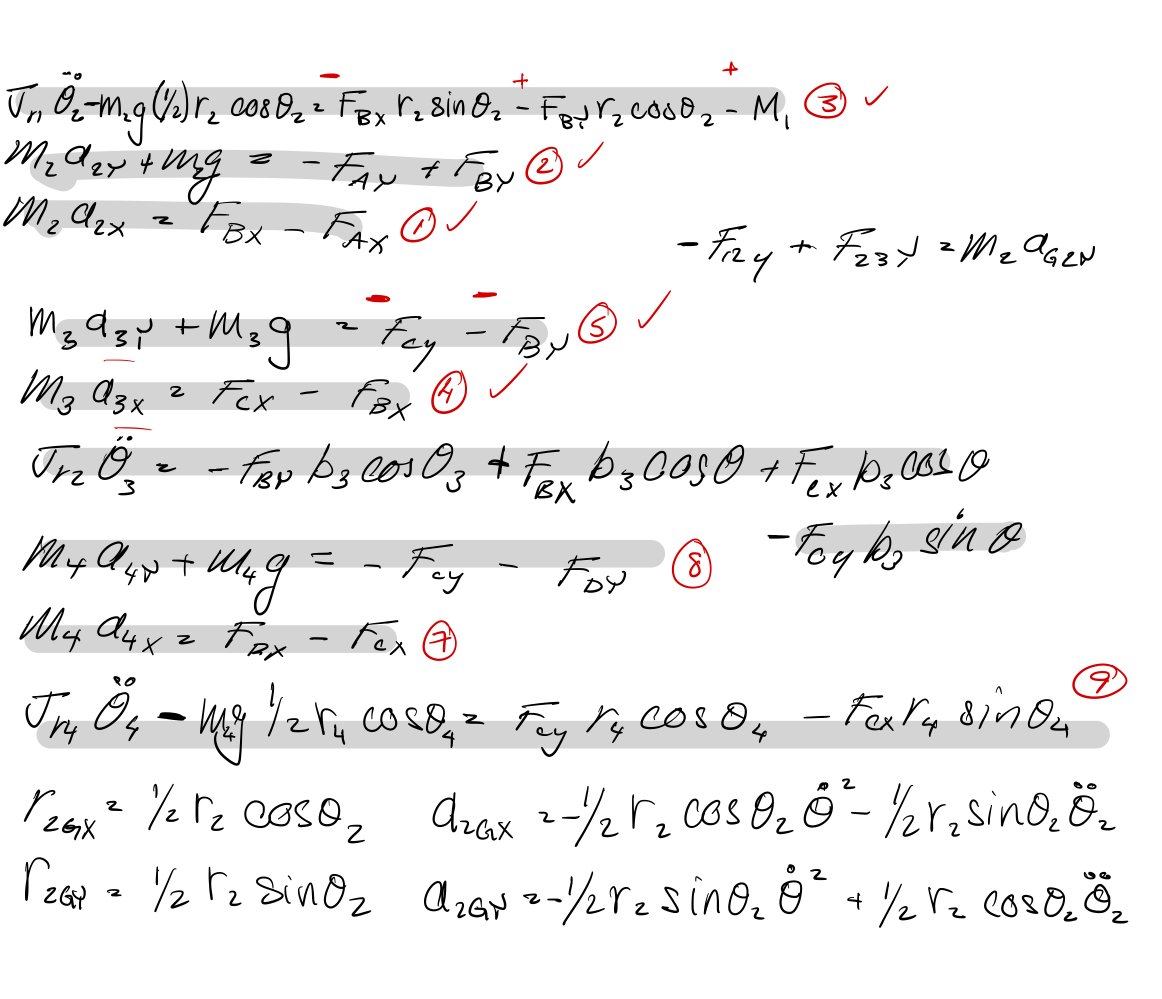 J_{r1} θ̈_2 - m_2 g (1/2) r_2 cosθ_2 = F_{BX} r_2 sinθ_2 - F_{BY} r_2 cosθ_2 - M_1 ③ ✓
- + +
m_2 a_{2Y} + m_2 g = - F_{AY} + F_{BY} ② ✓
m_2 a_{2X} = F_{BX} - F_{AX} ① ✓
- F_{12y} + F_{23Y} = m_2 a_{G2Y}
m_3 a_{3Y} + m_3 g = F_{cy} - F_{BY} ⑤ ✓
- -
m_3 a_{3X} = F_{CX} - F_{BX} ④ ✓
J_{r2} θ̈_3 = - F_{BY} b_3 cosθ_3 + F_{BX} b_3 cosθ + F_{cx} b_3 cosθ
- F_{cy} b_3 sinθ
m_4 a_{4Y} + m_4 g = - F_{cy} - F_{DY} ⑧
m_4 a_{4X} = F_{DX} - F_{cX} ⑦
J_{r4} θ̈_4 - m_4 g 1/2 r_4 cosθ_4 = F_{cy} r_4 cosθ_4 - F_{cx} r_4 sinθ_4 ⑨
r_{2GX} = 1/2 r_2 cosθ_2 a_{2GX} = -1/2 r_2 cosθ_2 θ̇^2 - 1/2 r_2 sinθ_2 θ̈_2
r_{2GY} = 1/2 r_2 sinθ_2 a_{2GY} = -1/2 r_2 sinθ_2 θ̇^2 + 1/2 r_2 cosθ_2 θ̈_2